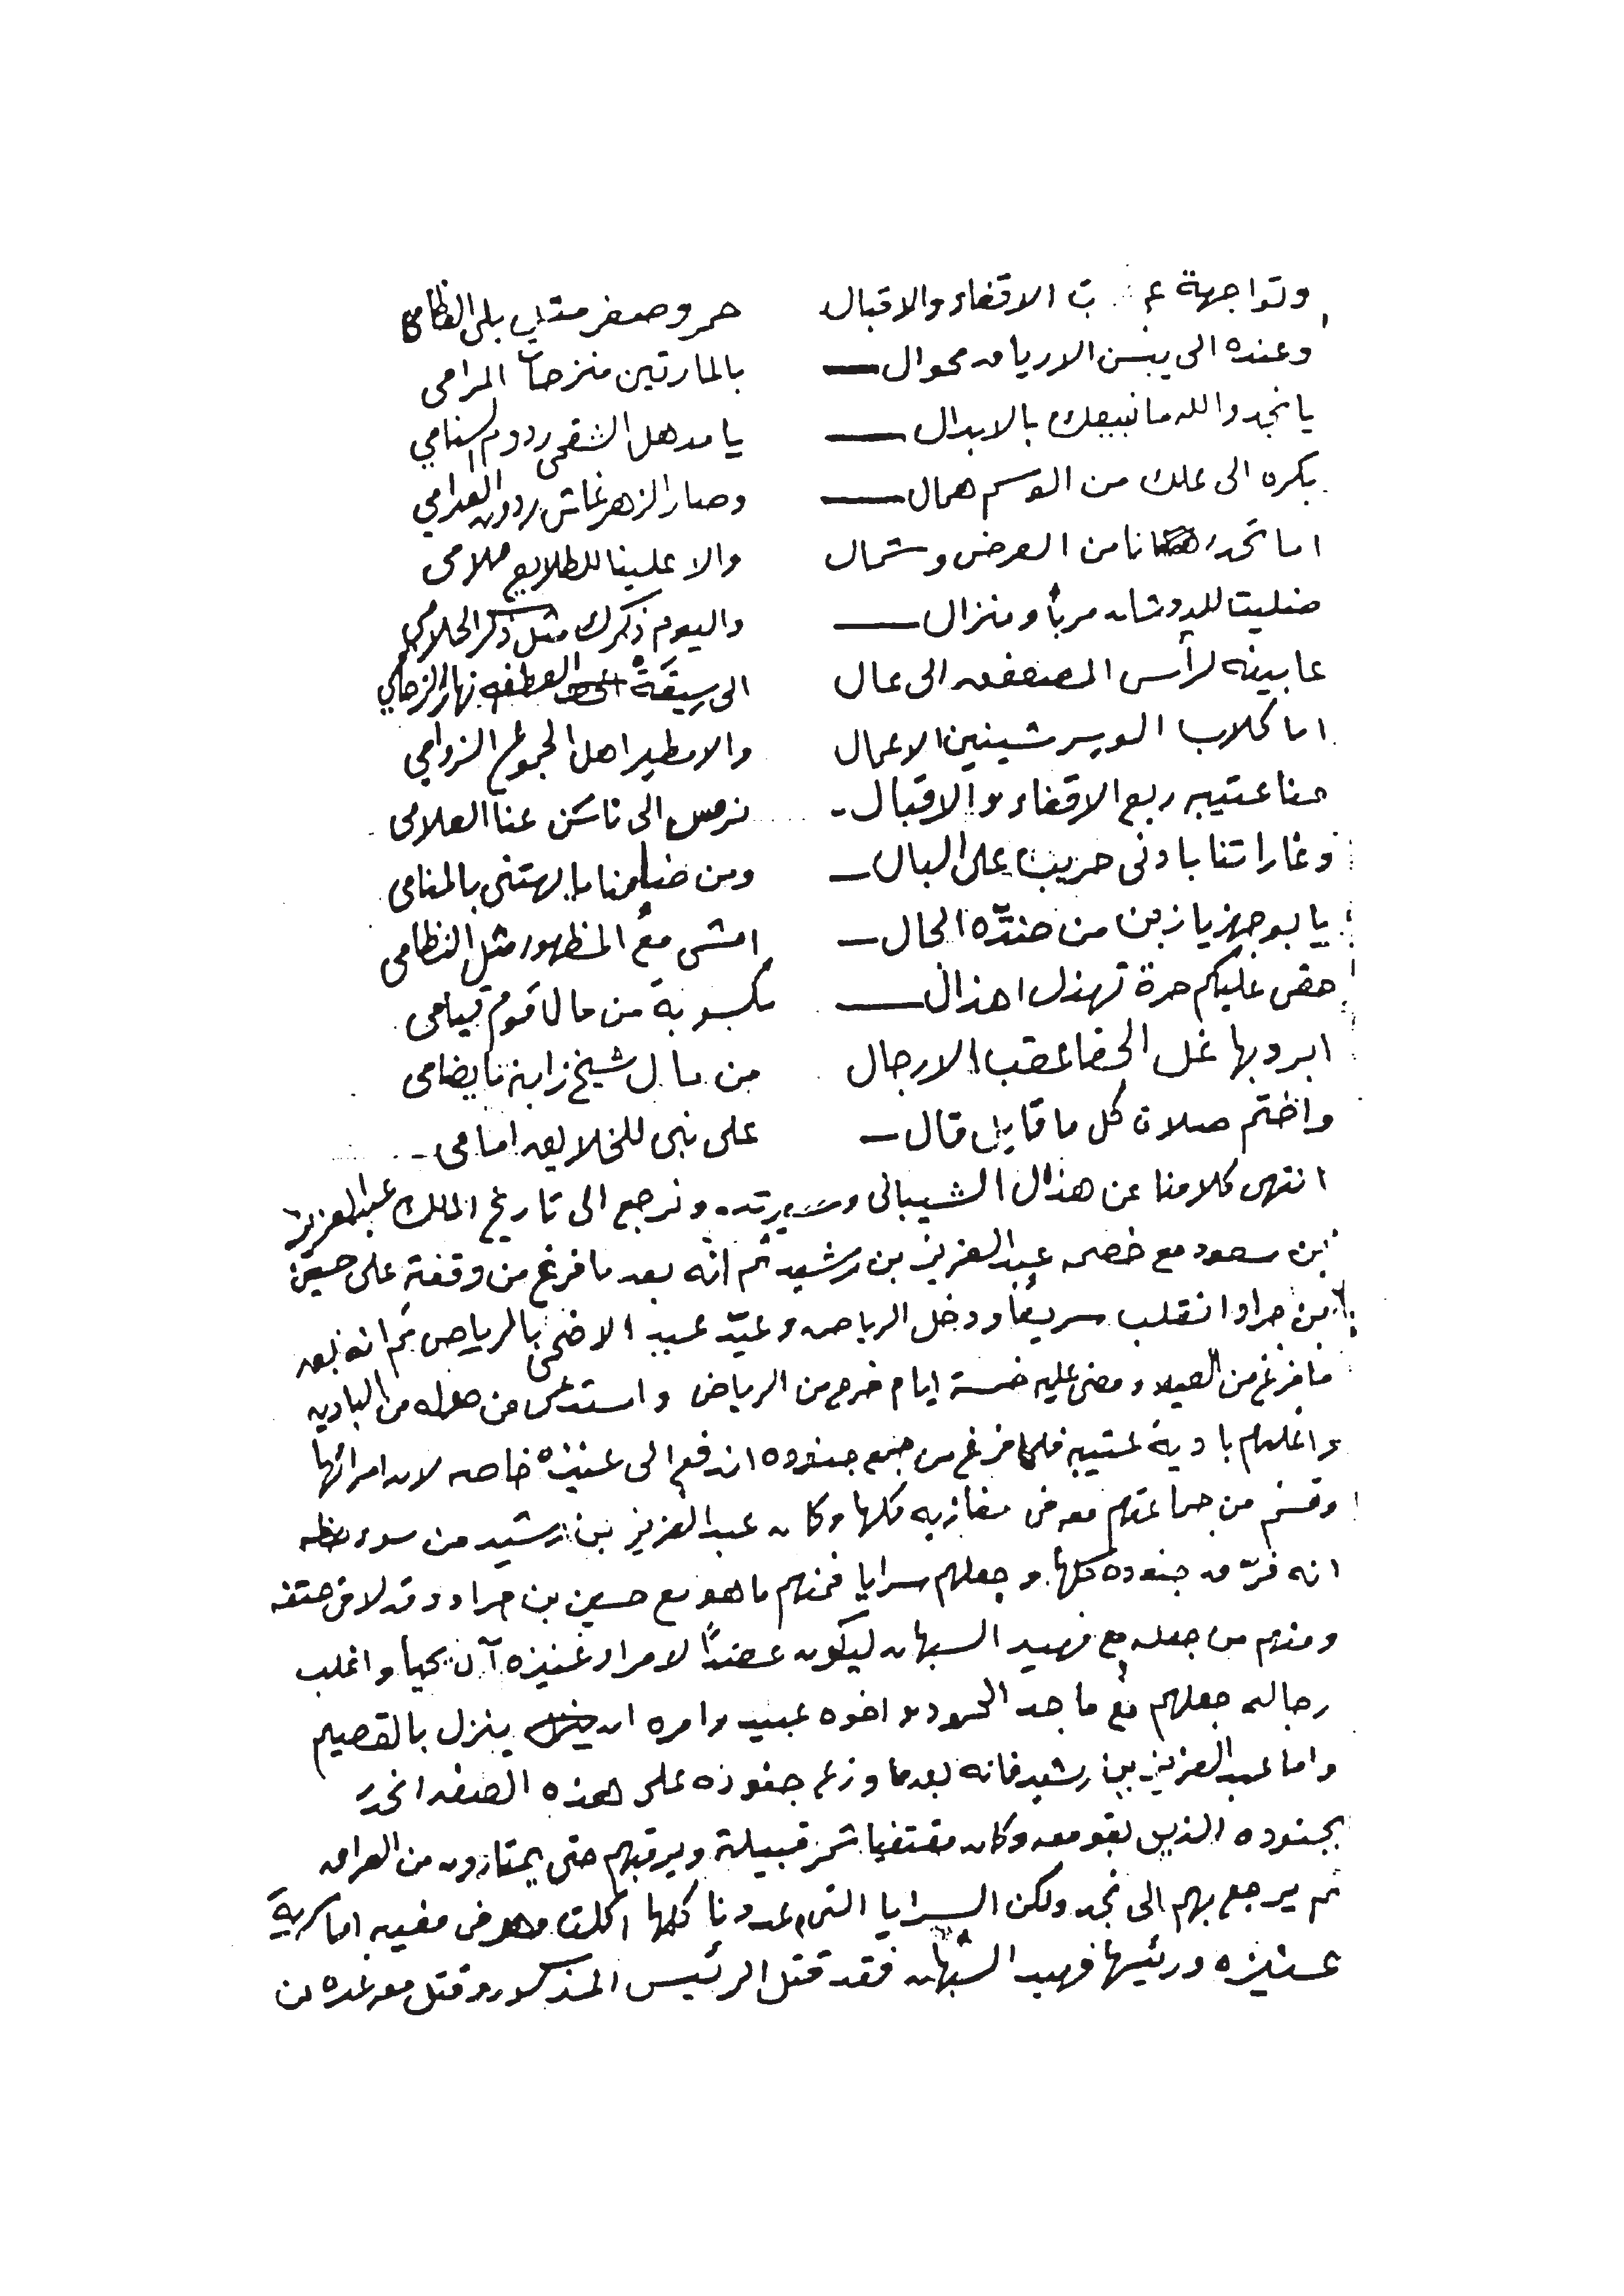 وتواجهة ع ت الاقفاء والاقبال حمر وصفر مثل بلى العظامى
وعنده الى يبسن الارياق محوال بالمارتين منزحات المرامى
يا نجد والله ما نبيعك بالابدال يا مدهل الشقحى ردوم السنامي
بكره الى علك من الوسم همال وصار الزهر غاش ردون العدامي
اما تحدر نا من العرض وشمال والا علينا للطلايع ملامى
خليت للدوشان مربأ ومنزال واليوم ذكرك مثل ذكر الحلامى
عا بينه لرأس المصعفقه الى عال الى سيقة العطفه نهار الزحامي
اما كلاب الوبير شينين الاعمال والا مطير اهل الجموع الزوامي
حنا عتيبه ربع الاقفاء والاقبال نرمس الى ناسكن عنا العلامى
وغاراتنا بادنى حريب على البال ومن ضدنا منا ما يهتنى بالمنامى
يا بو جهز يا زبن من ضده الحال امشى مع المظهور مثل النظامى
حقى عليكم حرة تهذل اهذال مكسوبة من مال قوم قيامى
ابرو بها غل الحفا عقب الارجال من مال شيخ زابنه ما يضامى
واختم صلات كل ما قايل قال على نبى للخلايق امامى
انتهى كلامنا عن هذال الشيبانى وسيرته ونرجع الى تاريخ الملك عبدالعزيز
ابن سعود مع خصمه عبدالعزيز بن رشيد ثم انه بعد ما فرغ من وقفة على حسين
بن جراد انقلب سريعاً ودخل الرياض وعيّد عيد الاضحى بالرياض ثم انه بعد
ما فرغ من العيد ومضى عليه خمسة ايام خرج من الرياض واستدعى من حوله من الباديه
واغلبهم بادية عتيبه فلما فرغ من جمع جنوده اندفع الى عنيزه خاصه لان امرائها
وقسم من جماعتهم معه فى مغازيه كلها وكان عبدالعزيز بن رشيد من سوء حظه
انه فرّق جنوده كلها وجعلهم سرايا فمنهم ما هو مع حسين بن جراد وقد لاقى حتفه
ومنهم من جعله مع فهيد السبهان ليكون عضداً لامراء عنيزه آل يحيا واغلب
رجاله جعلهم مع ماجد الحمود واخوه عبيد وامره ان ينزل بالقصيم
واما عبدالعزيز بن رشيد فانه بعدما وزع جنوده على هذه الصفه انحدر
بجنوده الذين بقو معه وكان مقتفيا شمر قبيلته ويرقبهم حتى يمتارون من العراق
ثم يرجع بهم الى نجد ولكن السرايا التى عددنا كلها اكلت وهو فى مغيبه اما سرية
عنيزه ورئيسها فهيد السبهان فقد قتل الرئيس المذكور وقتل معه عده من